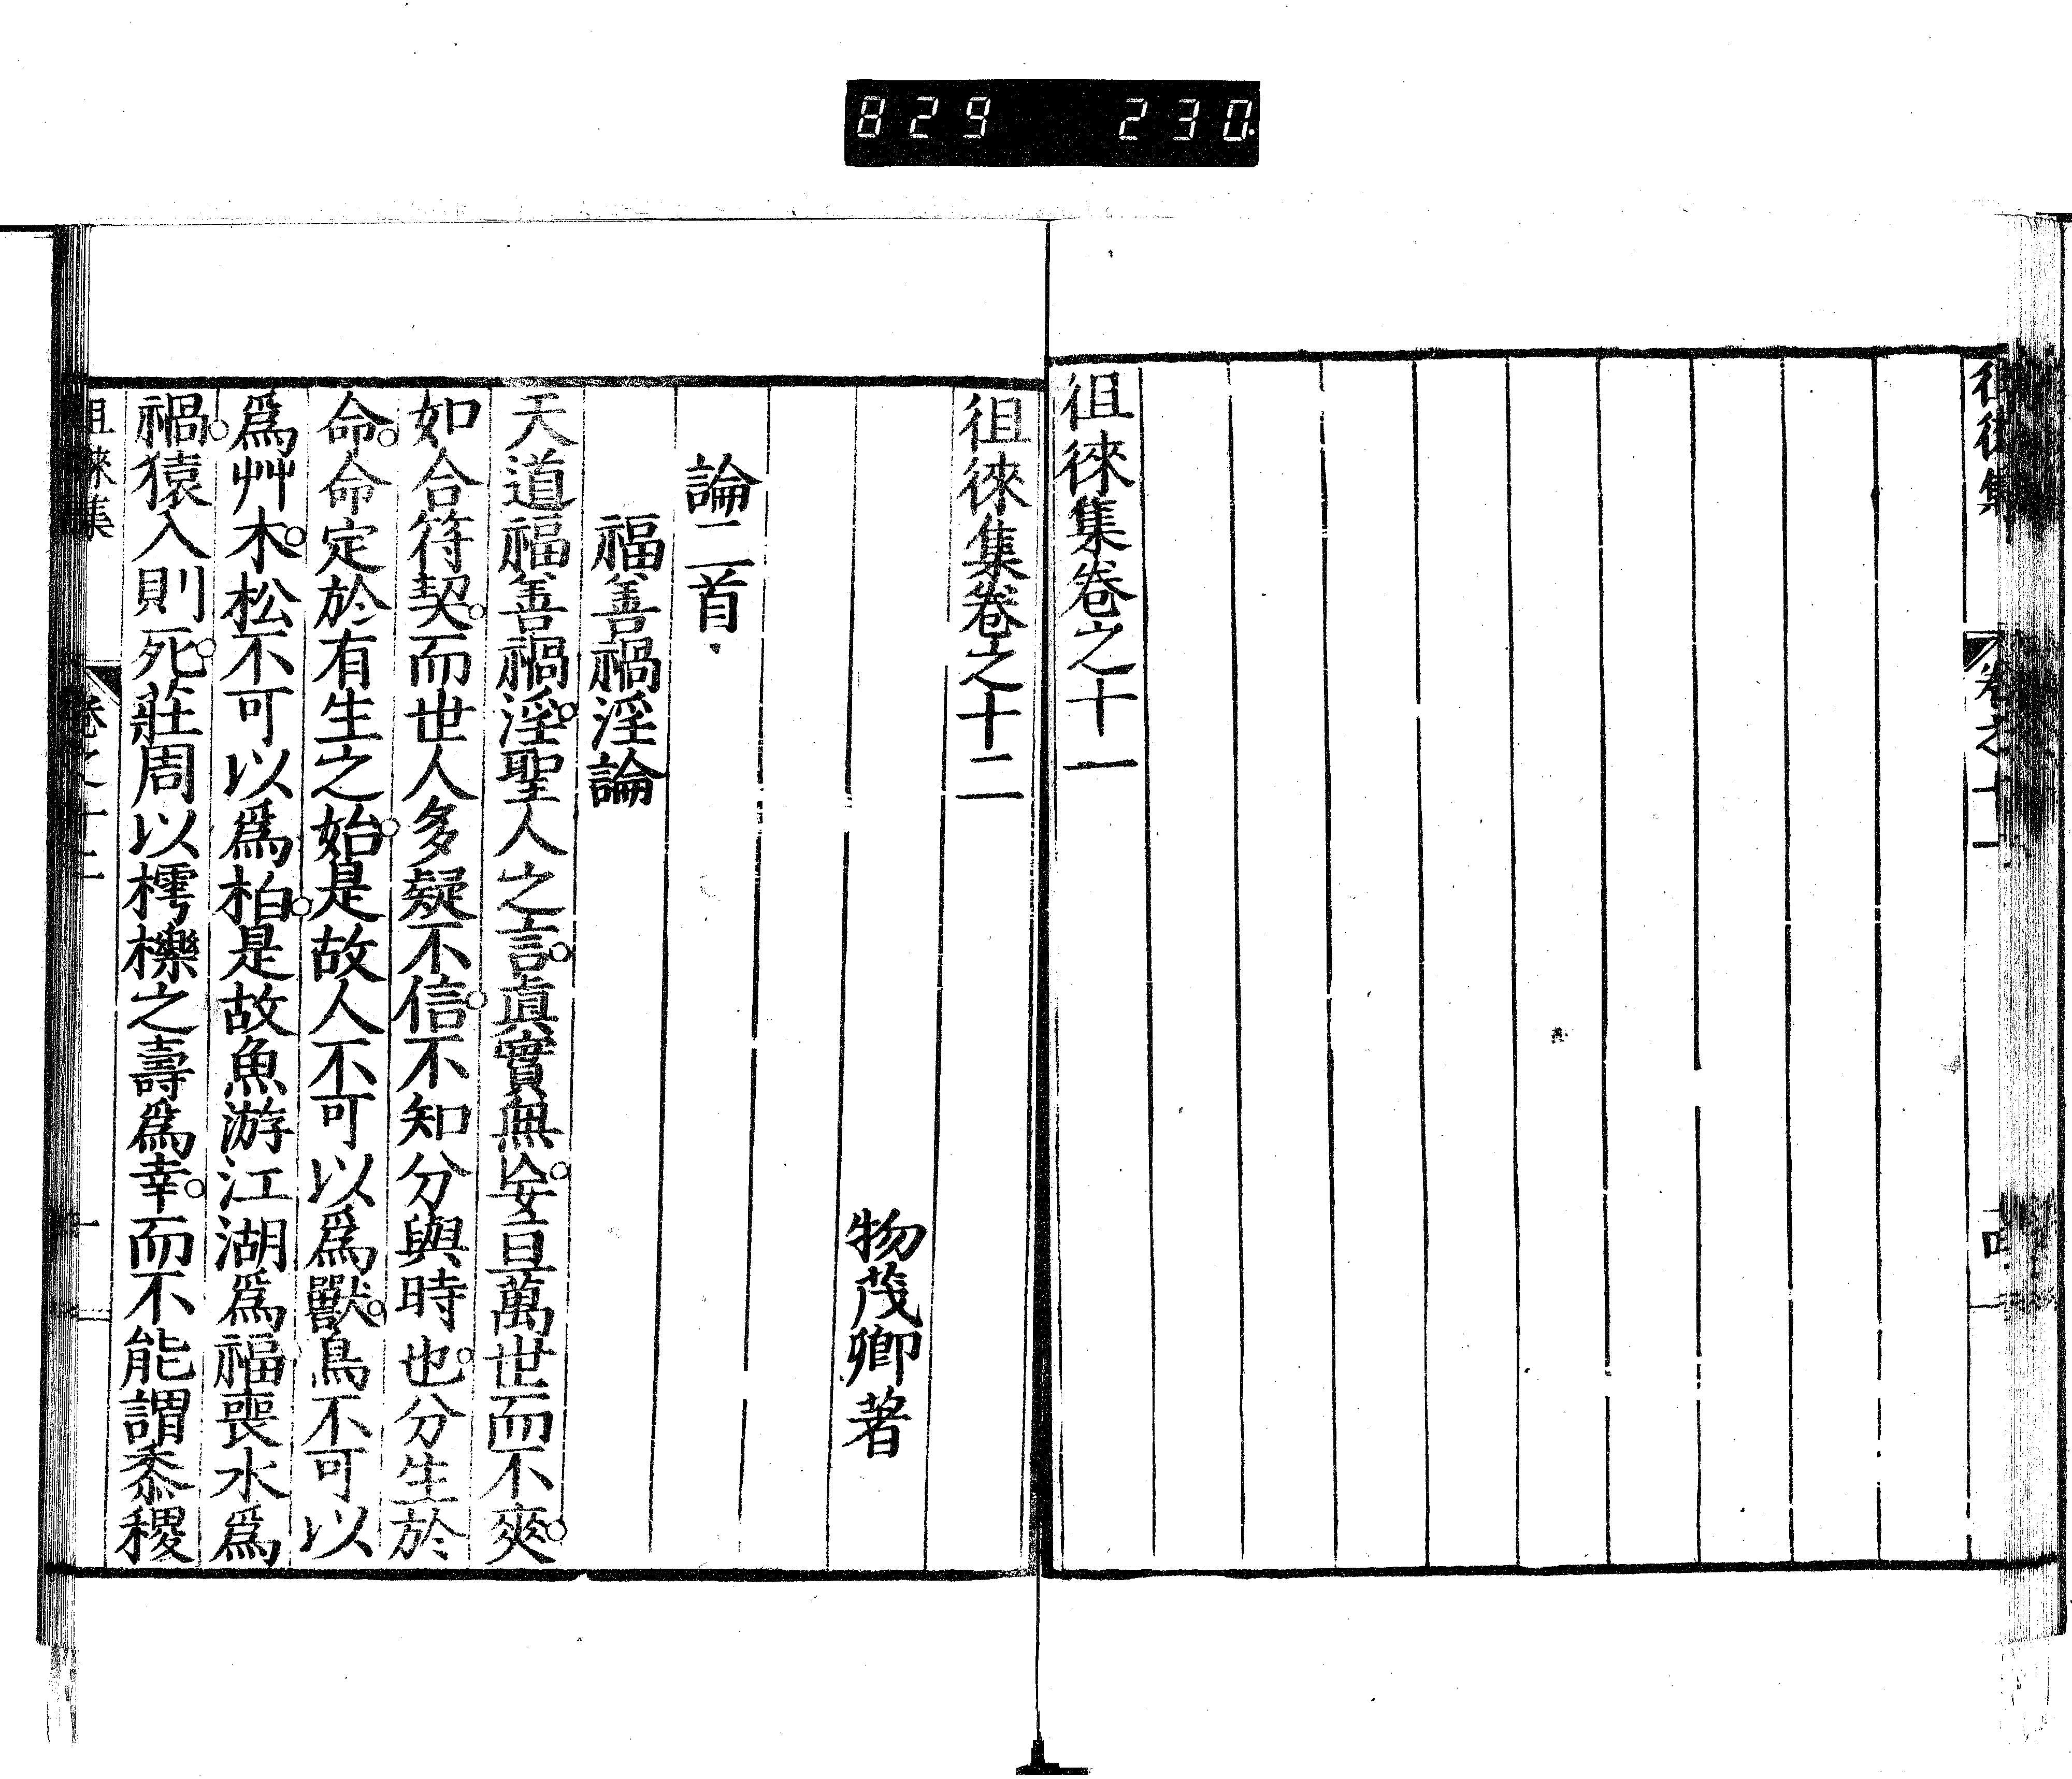 829 230
徂徠集 卷之十一
徂徠集卷之十一
徂徠集卷之十二
物茂卿著
論二首
福善禍淫論
天道福善禍淫。聖人之言。眞實無妄。亘萬世而不爽。
如合符契。而世人多疑不信。不知分與時也。分生於
命。命定於有生之始。是故人不可以爲獸。鳥不可以
爲艸木。松不可以爲柏。是故魚游江湖爲福喪水爲
禍。猿入則死。莊周以樗櫟之壽爲幸。而不能謂黍稷
徂徠集 卷之十二 一